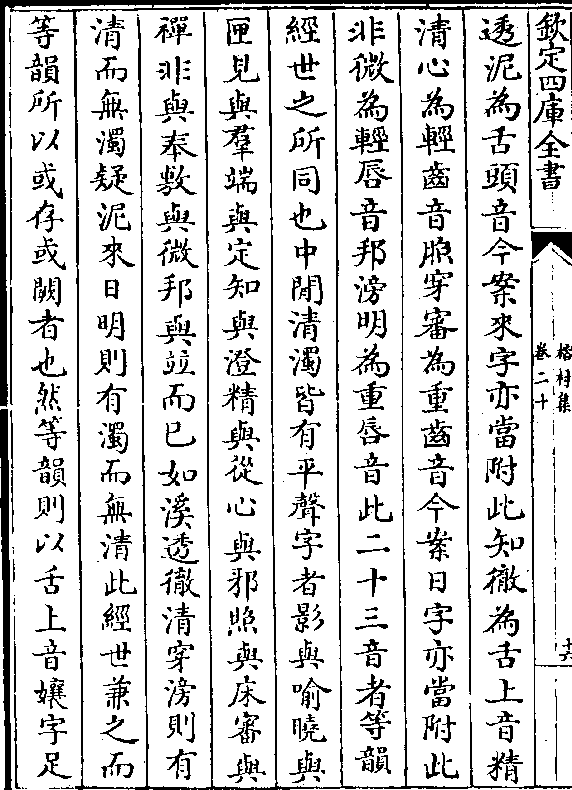 欽定四庫全書
榕村集
卷二十
十六
透泥為舌頭音今案來字亦當附此知徹為舌上音精
清心為輕齒音照穿審為重齒音今案日字亦當附此
非微為輕唇音邦滂明為重唇音此二十三音者等韻
經世之所同也中間清濁皆有平聲字者影與喻曉與
匣見與羣端與定知與澄精與從心與邪照與床審與
禪非與奉敷與微邦與竝而已如溪透徹清穿滂則有
清而無濁疑泥來日明則有濁而無清此經世兼之而
等韻所以或存或闕者也然等韻則以舌上音孃字足